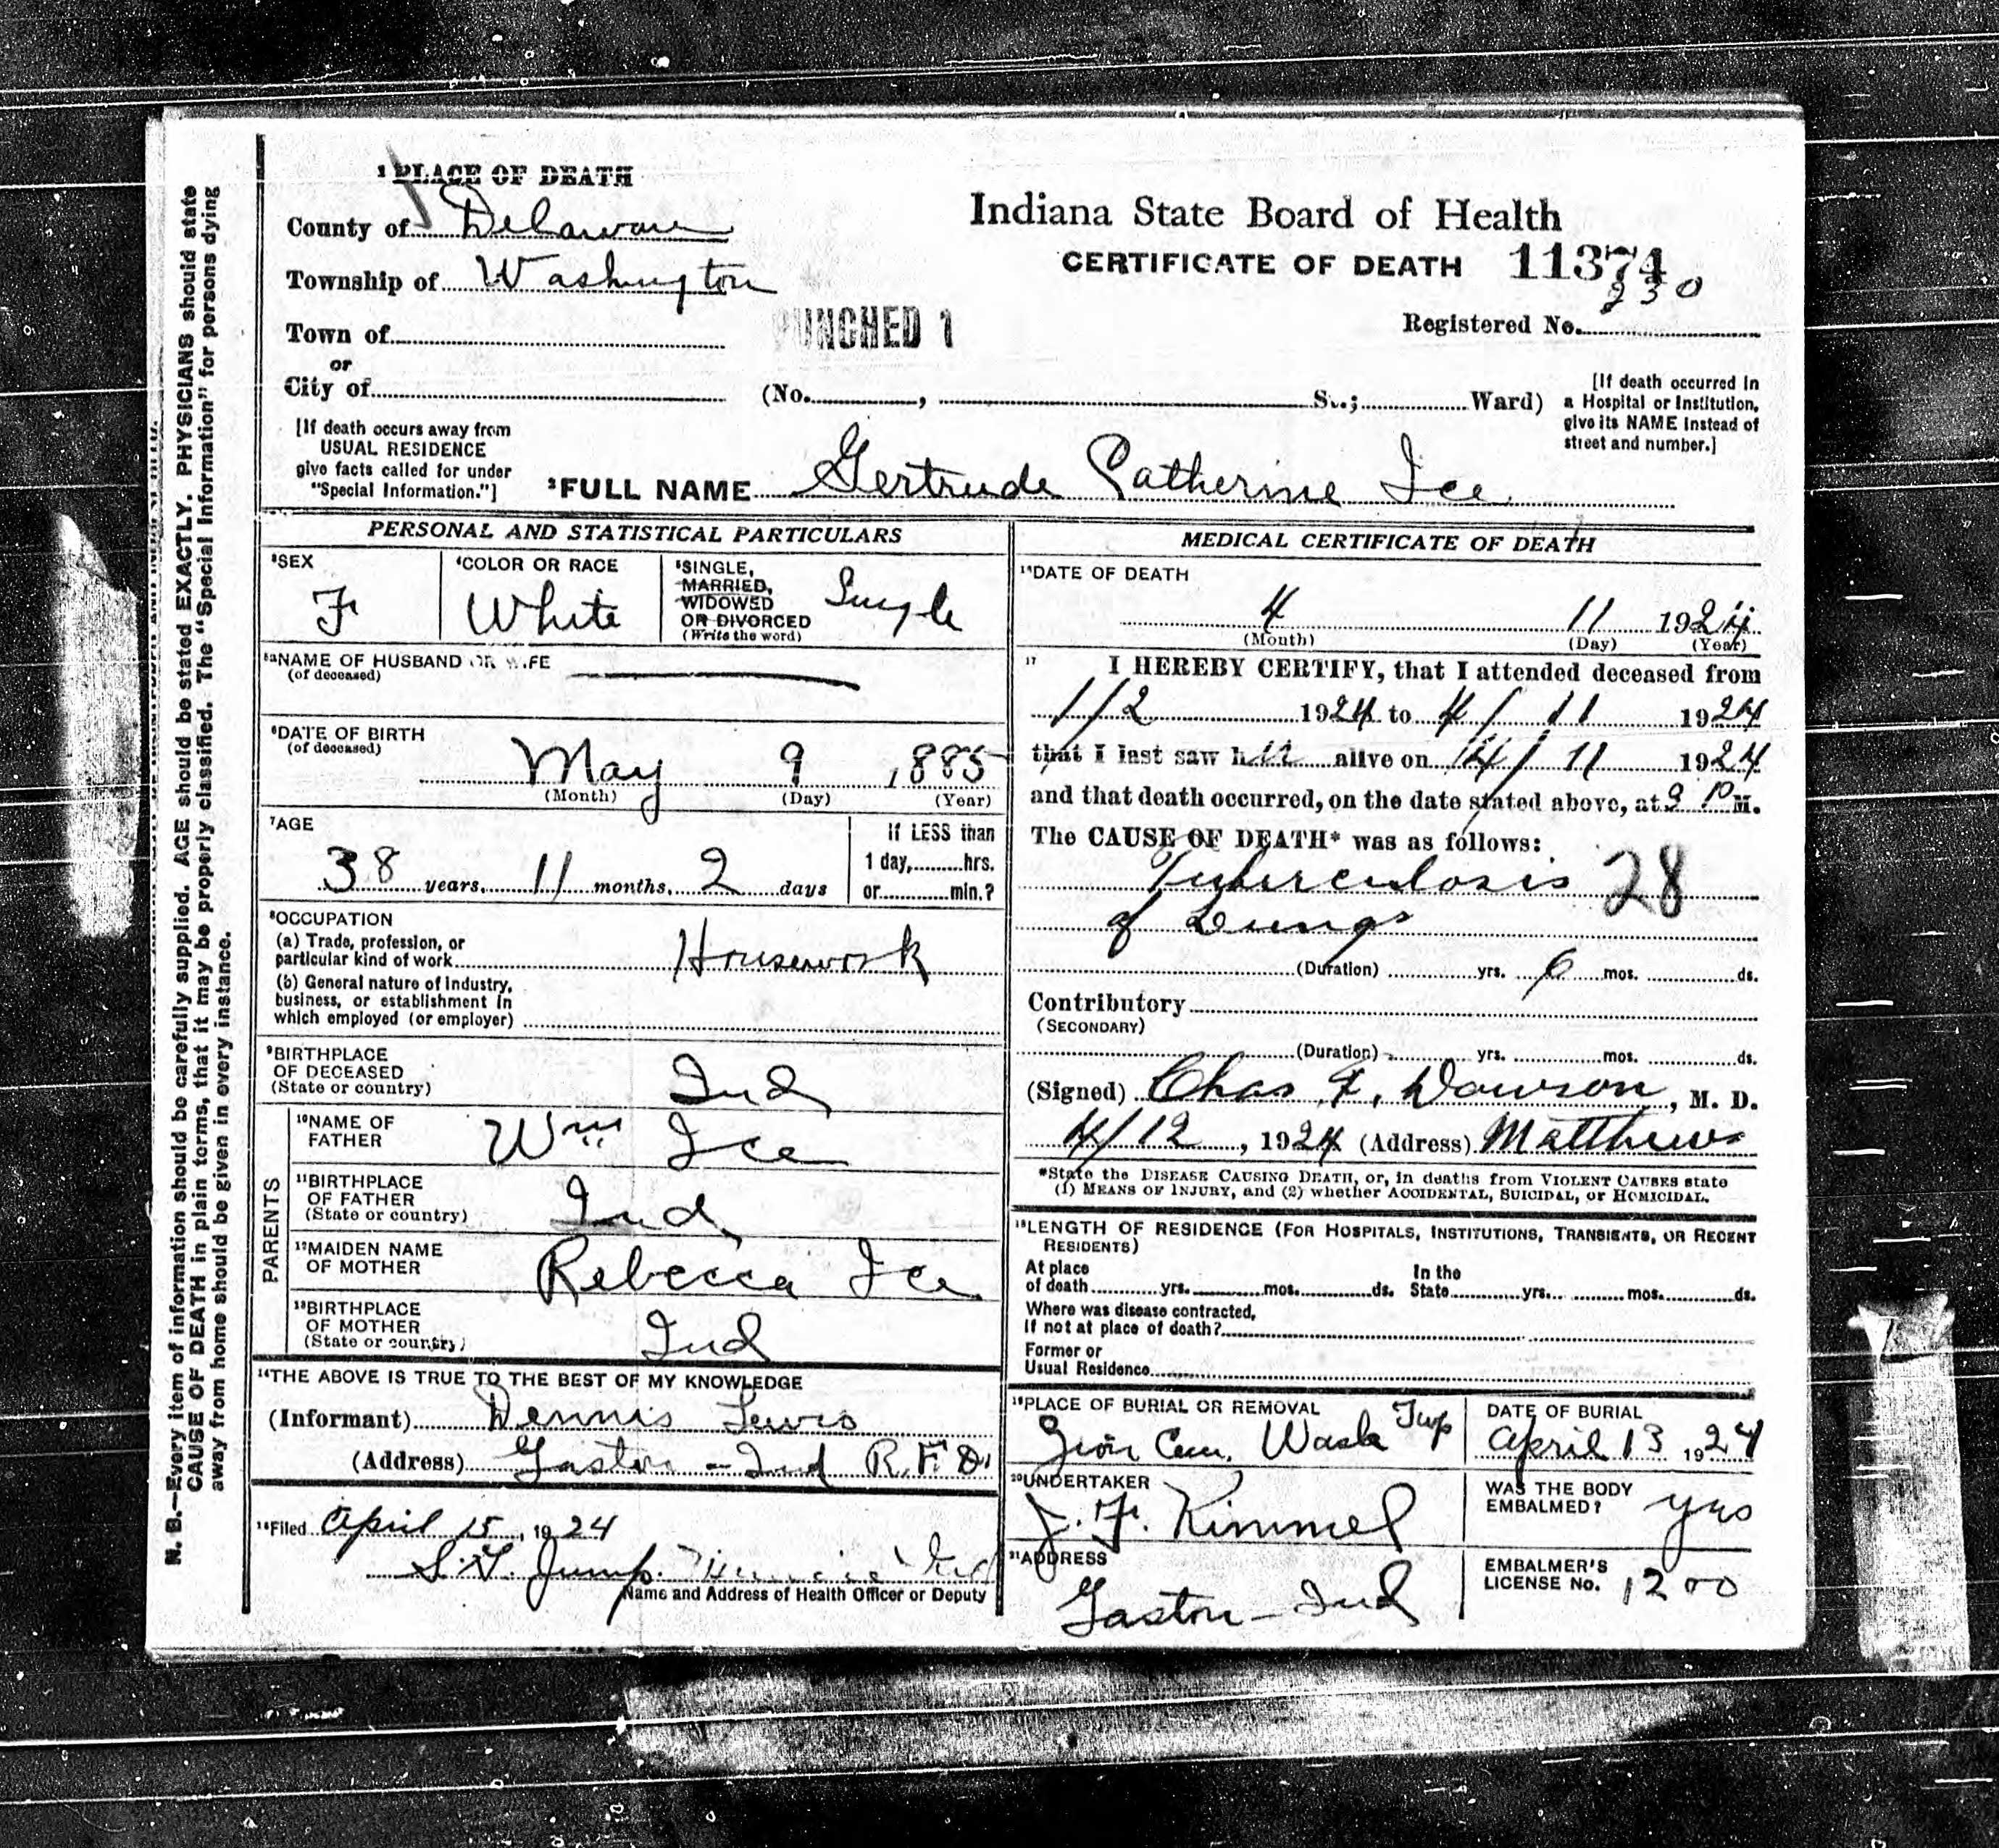 N. B.—Every item of information should be carefully supplied. AGE should be stated EXACTLY. PHYSICIANS should state
CAUSE OF DEATH in plain terms, that it may be properly classified. The "Special Information" for persons dying
away from home should be given in every instance.
1 PLACE OF DEATH
County of Delaware
Township of Washington
Town of
or
City of
(No. , St.; Ward)
Indiana State Board of Health
CERTIFICATE OF DEATH 11374
230
Registered No.
PUNCHED 1
[If death occurred in
a Hospital or Institution,
give its NAME instead of
street and number.]
[If death occurs away from
USUAL RESIDENCE
give facts called for under
"Special Information."]
2 FULL NAME Gertrude Catherine Ice
PERSONAL AND STATISTICAL PARTICULARS
3 SEX
F
4 COLOR OR RACE
White
5 SINGLE,
MARRIED,
WIDOWED
OR DIVORCED
(Write the word)
Single
5a NAME OF HUSBAND OR WIFE
(of deceased)
6 DATE OF BIRTH
(of deceased)
May 9 , 1885
(Month) (Day) (Year)
7 AGE
38 years, 11 months, 2 days
If LESS than
1 day, hrs.
or min.?
8 OCCUPATION
(a) Trade, profession, or
particular kind of work Housework
(b) General nature of industry,
business, or establishment in
which employed (or employer)
9 BIRTHPLACE
OF DECEASED
(State or country)
Ind
PARENTS
10 NAME OF
FATHER
Wm Ice
11 BIRTHPLACE
OF FATHER
(State or country)
Ind
12 MAIDEN NAME
OF MOTHER
Rebecca Ice
13 BIRTHPLACE
OF MOTHER
(State or country)
Ind
14 THE ABOVE IS TRUE TO THE BEST OF MY KNOWLEDGE
(Informant) Dennis Lewis
(Address) Gaston - Ind R.F.D.
15 Filed April 15, 1924
S. G. Jump.
Name and Address of Health Officer or Deputy
MEDICAL CERTIFICATE OF DEATH
16 DATE OF DEATH
4 11 1924
(Month) (Day) (Year)
17 I HEREBY CERTIFY, that I attended deceased from
1/2 1924 to 4/11 1924
that I last saw h alive on 4/11 1924
and that death occurred, on the date stated above, at 9 P M.
The CAUSE OF DEATH* was as follows:
Tuberculosis 28
of Lungs
(Duration) yrs. 6 mos. ds.
Contributory
(SECONDARY)
(Duration) yrs. mos. ds.
(Signed) Chas F. Dawson, M. D.
4/12, 1924 (Address) Matthews
*State the DISEASE CAUSING DEATH, or, in deaths from VIOLENT CAUSES state
(1) MEANS OF INJURY, and (2) whether ACCIDENTAL, SUICIDAL, or HOMICIDAL.
18 LENGTH OF RESIDENCE (FOR HOSPITALS, INSTITUTIONS, TRANSIENTS, OR RECENT
RESIDENTS)
At place
of death yrs. mos. ds.
In the
State yrs. mos. ds.
Where was disease contracted,
If not at place of death?
Former or
Usual Residence
19 PLACE OF BURIAL OR REMOVAL
Zion Cem. Wash Twp
DATE OF BURIAL
April 13 1924
20 UNDERTAKER
J. F. Kimmel
WAS THE BODY
EMBALMED? yes
21 ADDRESS
Gaston - Ind
EMBALMER'S
LICENSE No. 1200